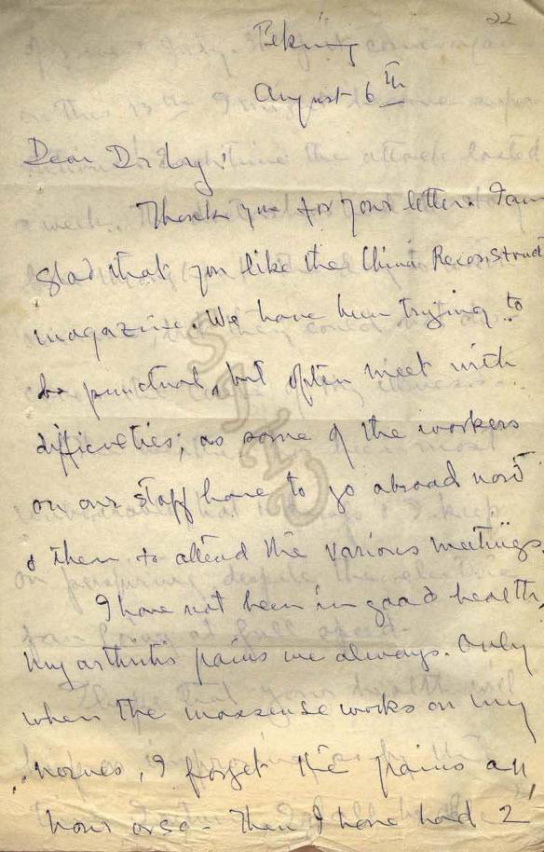 22
Peking
August 6th
Dear Dr
Thank you for your letter. I am
glad that you like the China Reconstruct
magazine. We have been trying to
be punctual, but often meet with
difficulties, as some of the workers
on our staff have to go abroad now
& then to attend the various meetings.
I have not been in good health,
my arthritis pains me always. Only
when the masseuse works on my
, I forget the pains an
hour or so. Then I have had 2